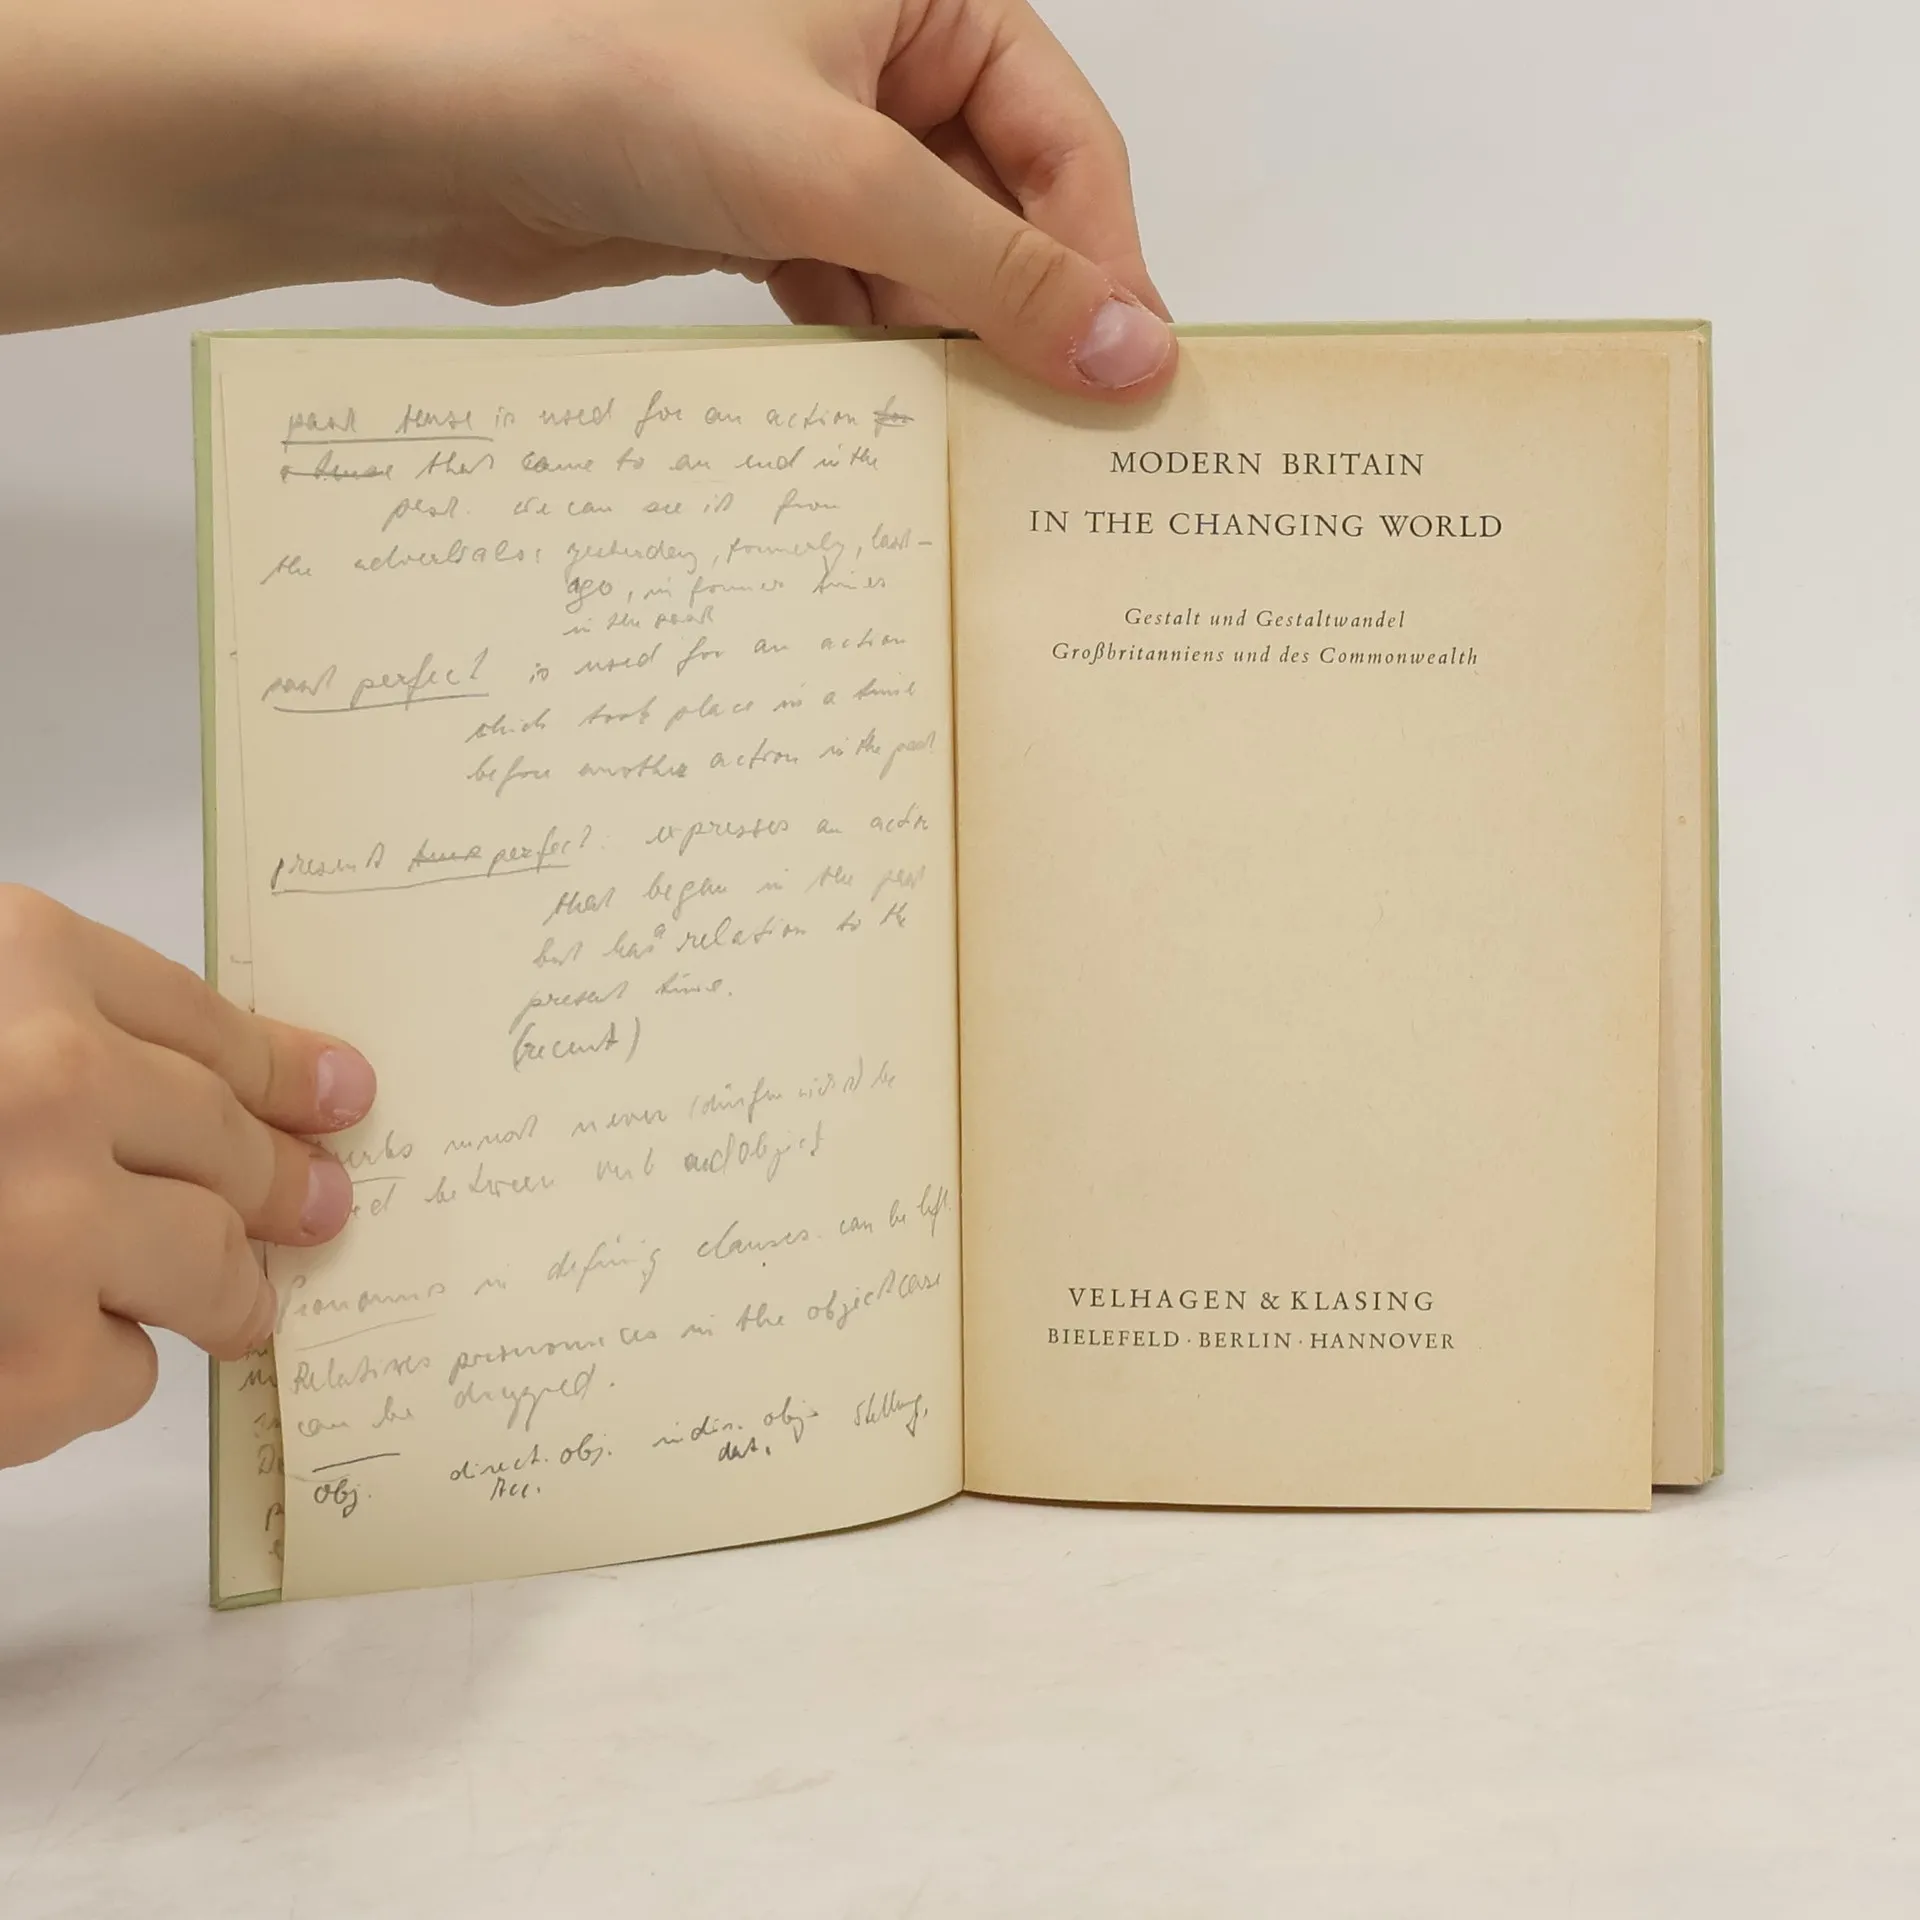 past tense is used for an action for
a tense that came to an end in the
past. We can see it from
the adverbials: yesterday, formerly, last –
ago, in former times
in the past
past perfect is used for an action
which took place in a time
before another action in the past
present tense perfect: expresses an action
that began in the past
but has a relation to the
present time.
(recent)
must never (dürfen nicht) be
between verb and object
Pronouns in defining clauses can be left
Relatives in the object case
can be dropped.
obj. direct. obj. indir. obj. Stellung,
Acc. dat.
MODERN BRITAIN
IN THE CHANGING WORLD
Gestalt und Gestaltwandel
Großbritanniens und des Commonwealth
VELHAGEN & KLASING
BIELEFELD · BERLIN · HANNOVER